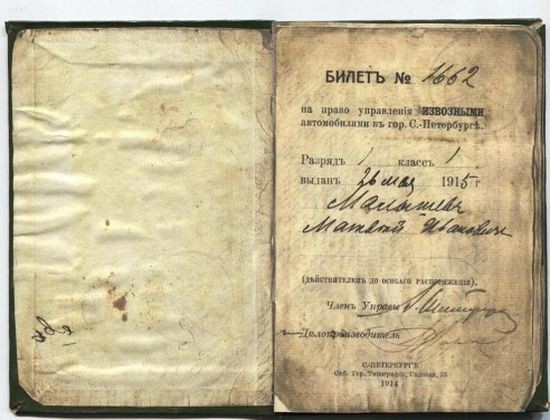 БИЛЕТЪ № 1662
на право управленія ИЗВОЗНЫМИ
автомобилями въ гор. С.-Петербургѣ.
Разрядъ 1 классъ 1
выданъ 26 мая 1915 г
Малышевъ
Матвѣй Ивановичъ
(ДѢЙСТВИТЕЛЕНЪ ДО ОСОБАГО РАСПОРЯЖЕНІЯ).
Членъ Управы
Дѣлопроизводитель
С-ПЕТЕРБУРГЪ
Спб. Гор. Типографія, Садовая, 55
1914